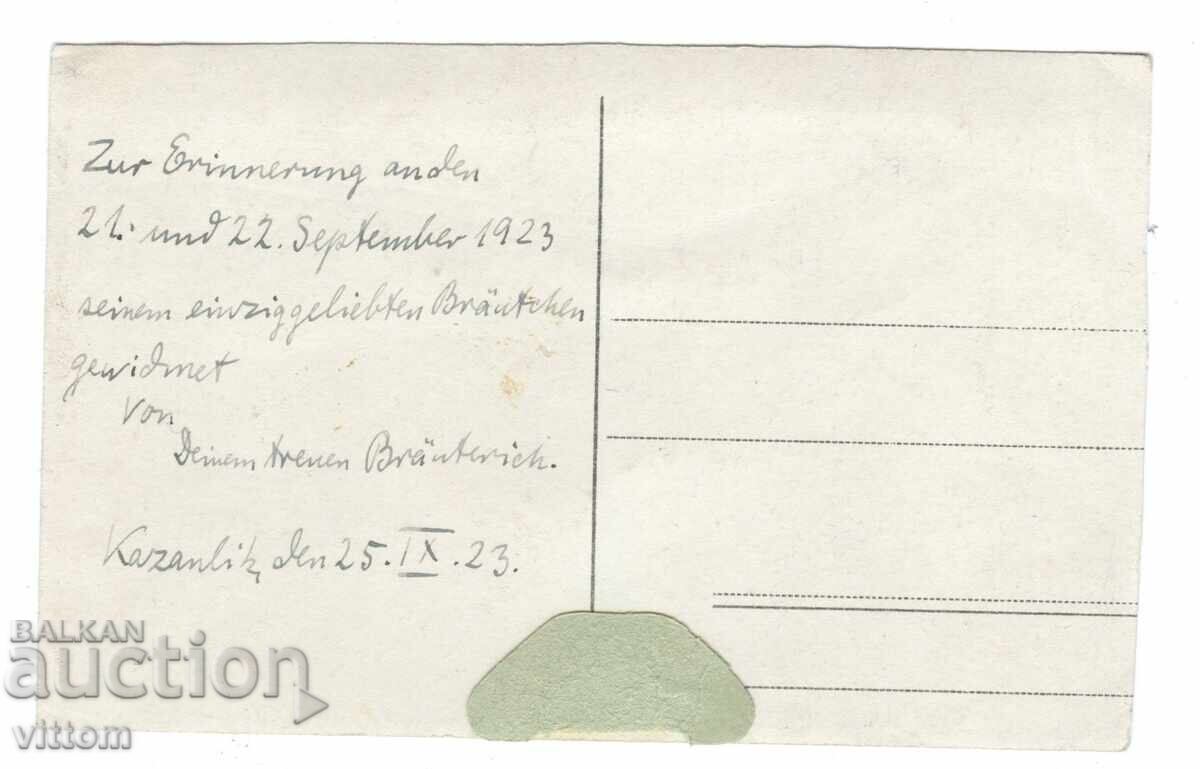 Zur Erinnerung an den
21. und 22. September 1923
seinem einziggeliebten Bräutchen
gewidmet
von
Deinem treuen Bräuterich.
Kazanlik, den 25. IX. 23.
BALKAN
auction
vittom